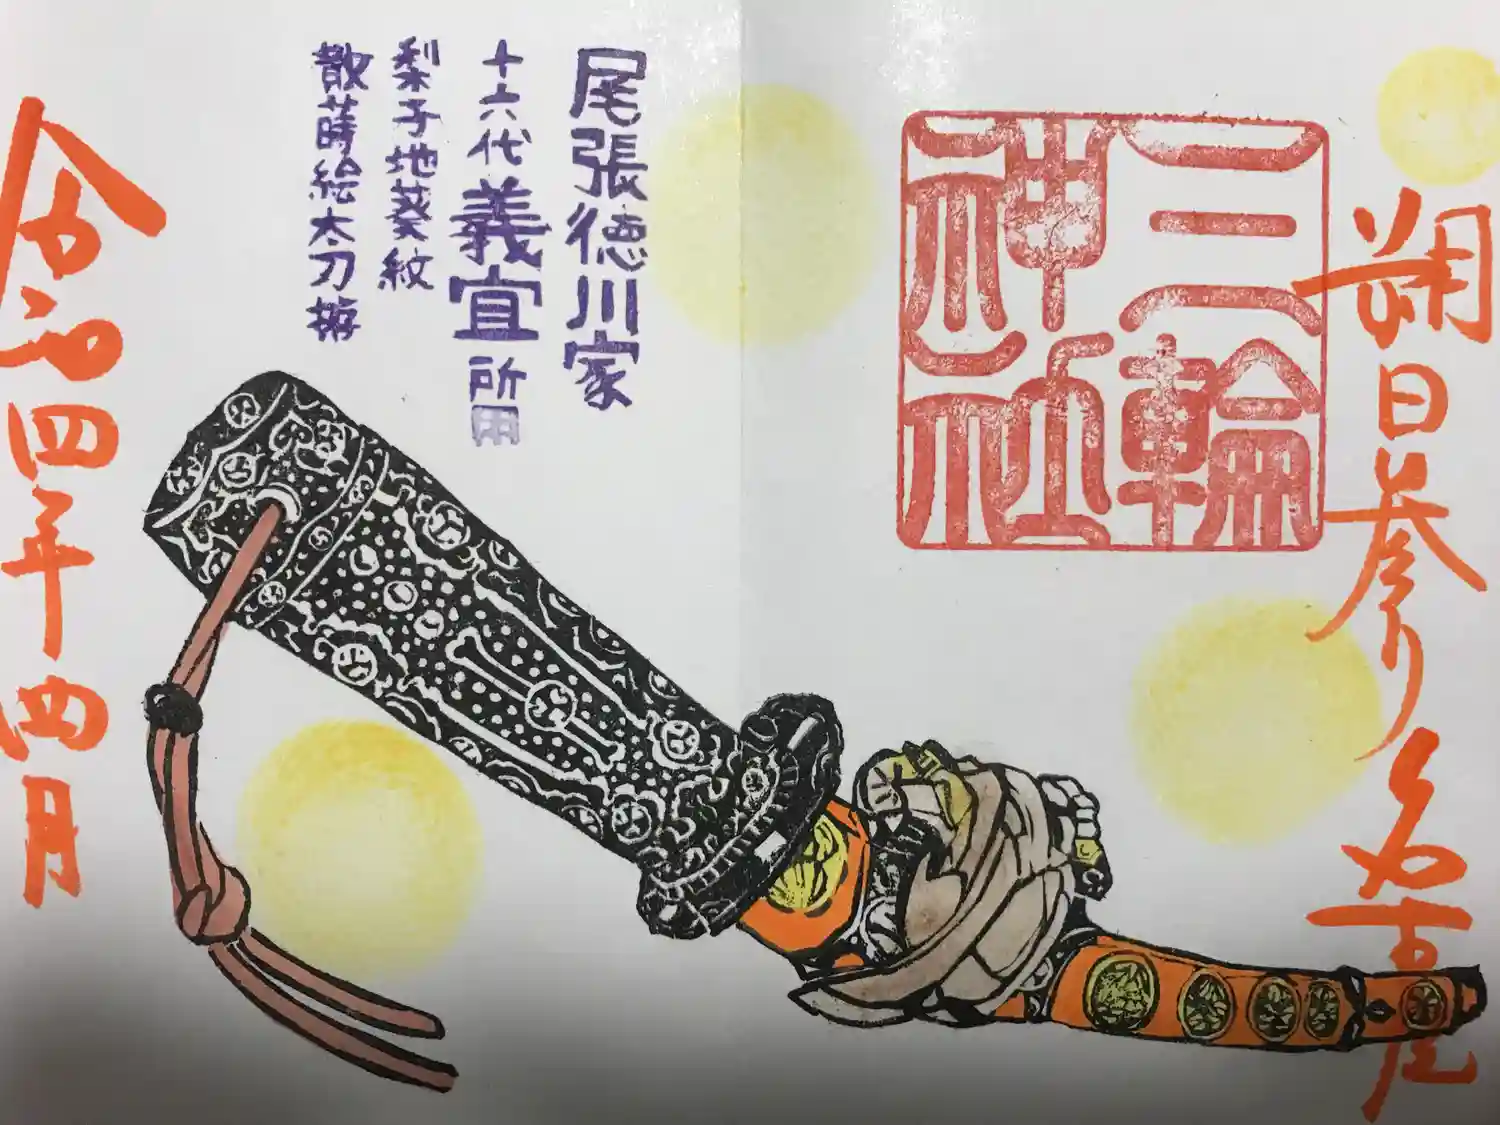 朔日参り名古屋
三輪
神社
尾張徳川家
十六代義宜所用
梨子地葵紋
散蒔絵太刀拵
令和四年四月